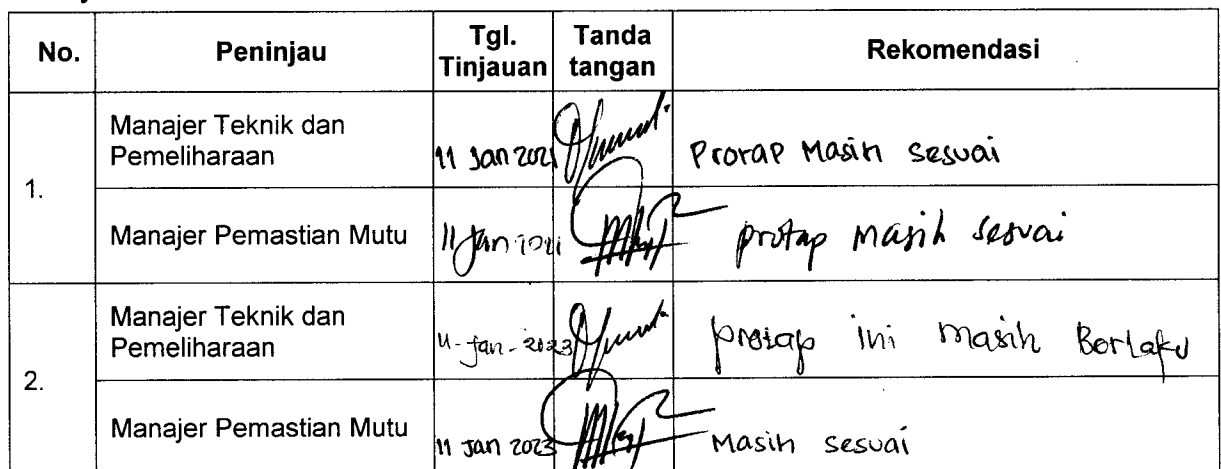 No.
Peninjau
Tgl. Tinjauan
Tanda tangan
Rekomendasi
1.
Manajer Teknik dan
Pemeliharaan
11 Jan 2021
Protap Masih sesuai
Manajer Pemastian Mutu
11 Jan 2021
protap masih sesuai
2.
Manajer Teknik dan
Pemeliharaan
11-Jan-2023
protap ini masih Berlaku
Manajer Pemastian Mutu
11 Jan 2023
Masih sesuai